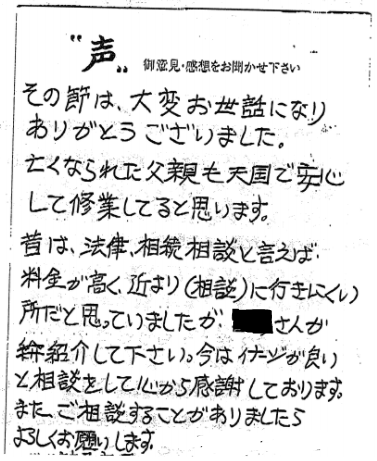 "声"
御意見・感想をお聞かせ下さい
その節は、大変お世話になり
ありがとうございました。
亡くなられた父親も天国で安心
して修業してると思います。
昔は、法律、相続相談と言えば、
料金が高く、近より(相談)に行きにくい
所だと思っていましたが、さんが
紹介して下さい。今はイメージが良い
と相談をして心から感謝しております。
また、ご相談することがありましたら
よろしくお願いします。